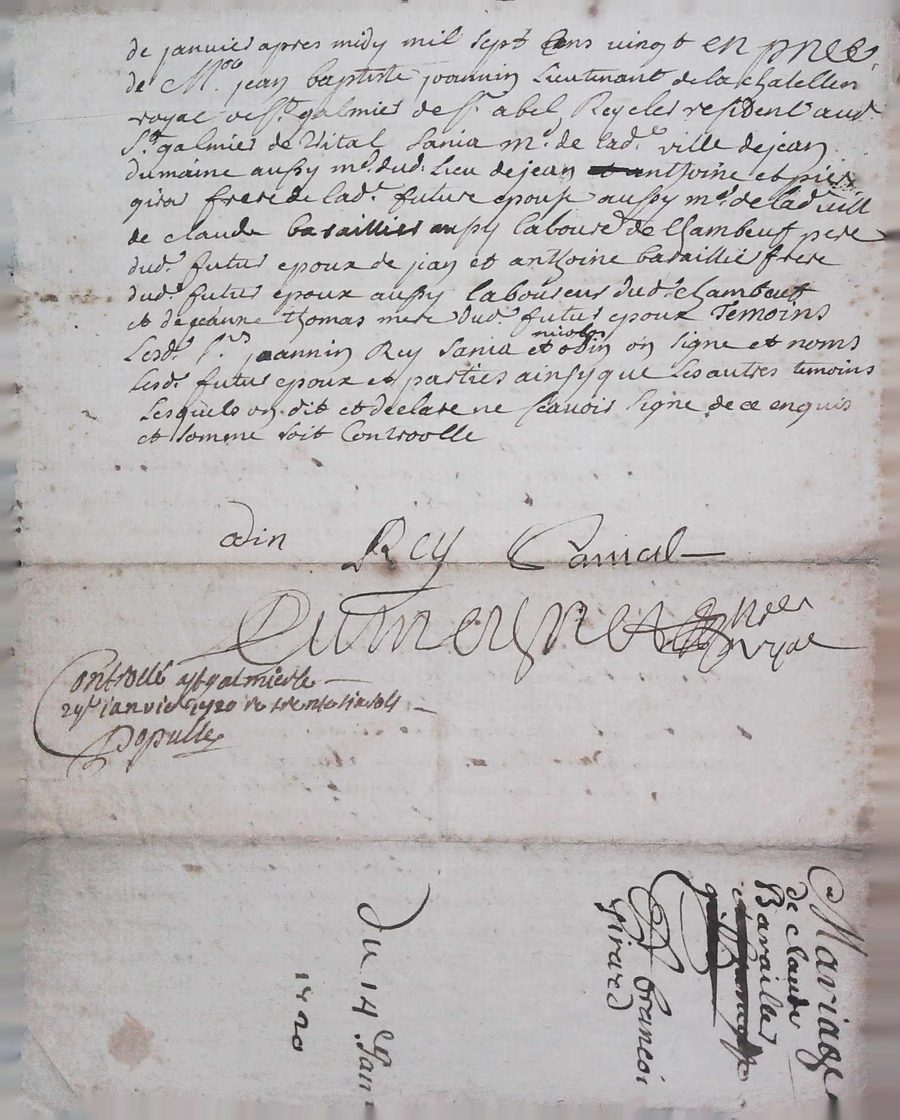 de janvier apres midy mil sept Cens vingt en pnce
de Me. jean baptiste joannin Lieutenant de la chatellen
royal de St. galmier de Sr. abel Rey cler resident aud.
St. galmier de Vital Sania md. de lad. ville de jean
dumaine aussy md. dud. Lieu de jean anthoine et pier
girar frere de lad. future epouse aussy md. de lad vill
de claude baraillier aussy laboure de Chambeuf pere
dud. futur epoux de jean et anthoine baraillie frere
dud. futur epoux aussy laboureur dud. chambeuf
et de jeanne thomas mere dud. futur epoux Temoins
Lesd. Srs joannin Rey Sania et nicolas odin on signe et noms
Lesd. futur epoux et parties ainsy que Les autres temoins
Lesquels on dit et declare ne scavoir signe de ce enquis
et somme soit Controolle
odin Rey Sanial
Dumeynet nree
royal
Controllé a St galmier le
24e janvier 1720 R trente six sols
Populle
Mariage
de claude
Baraillier
et francoi
girard
Du 14 Jan
1720